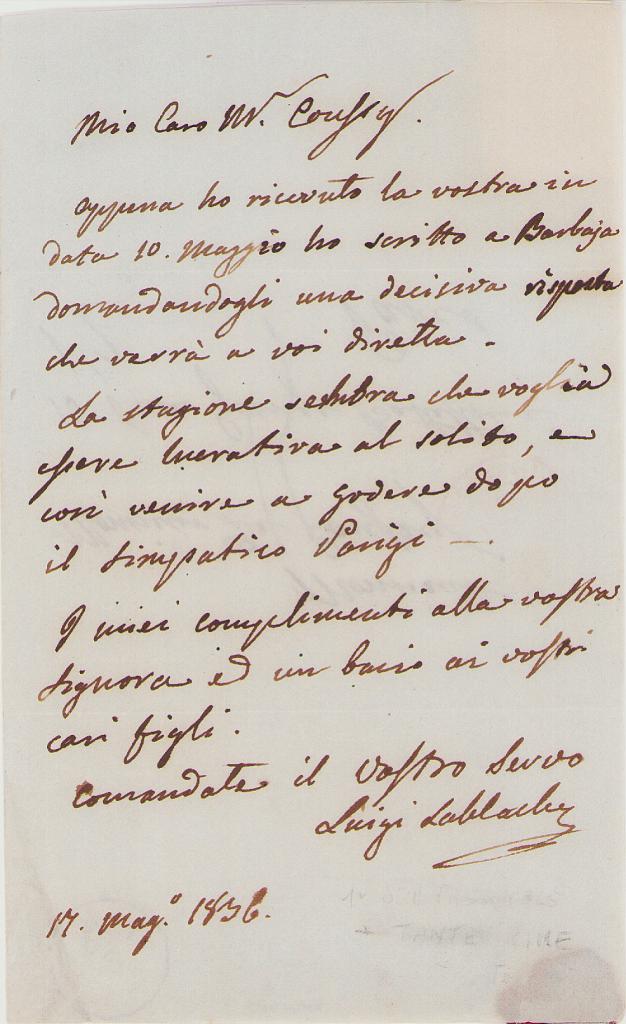 Mio Caro Mr. Coussy.
appena ho ricevuto la vostra in
data 10. Maggio ho scritto a Barbaja
domandandogli una decisiva risposta
che verrà a voi diretta.
La stagione sembra che voglia
essere lucrativa al solito, e
così venire a godere dopo
il simpatico Parigi —.
I miei complimenti alla vostra
Signora ed un bacio ai vostri
cari figli.
Comandate il vostro Servo
Luigi Lablache
17. Mag.o 1836.